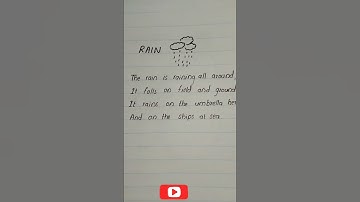 RAIN
The rain is raining all around,
It falls on field and ground
It rains on the umbrella her
And on the ships at sea.